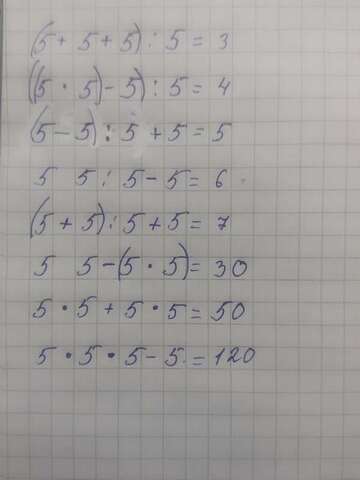 (5 + 5 + 5) : 5 = 3
((5 · 5) - 5) : 5 = 4
(5 - 5) : 5 + 5 = 5
5 5 : 5 - 5 = 6
(5 + 5) : 5 + 5 = 7
5 5 - (5 · 5) = 30
5 · 5 + 5 · 5 = 50
5 · 5 · 5 - 5 = 120